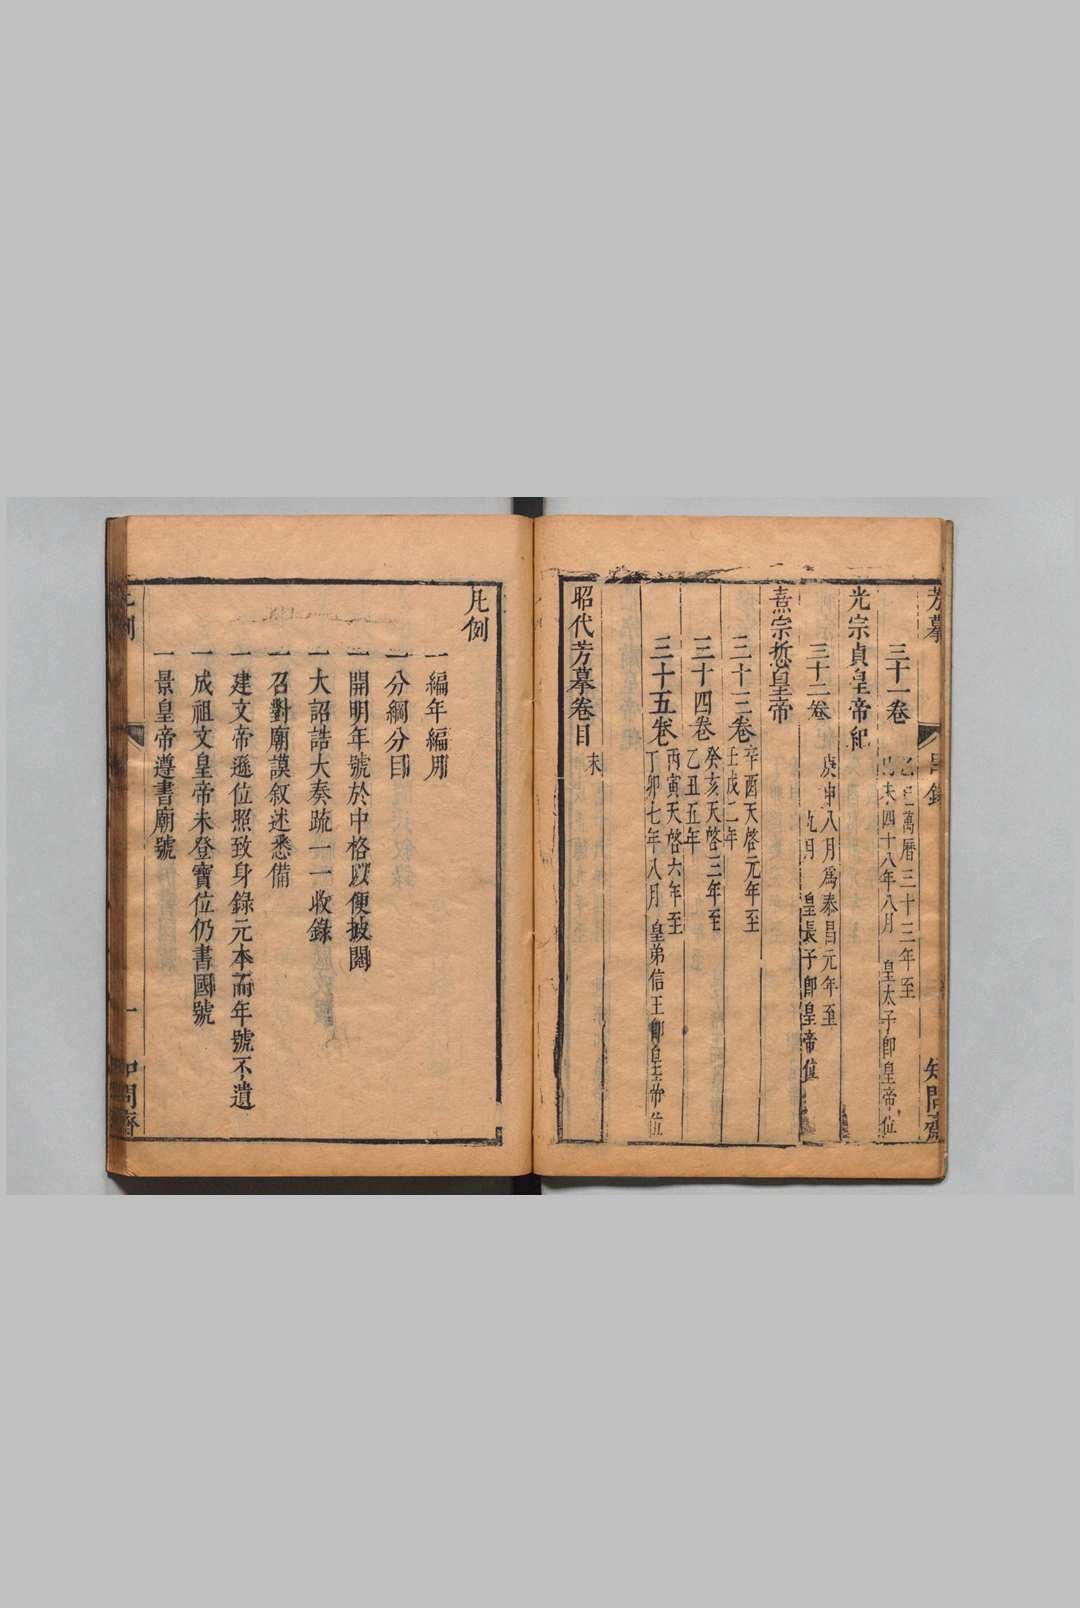 芳摹
三十一卷
乙巳萬曆三十三年至
己未四十八年八月 皇太子卽皇帝位
光宗貞皇帝紀
三十二卷
庚申八月爲泰昌元年至
九月 皇長子卽皇帝位
熹宗悊皇帝
三十三卷
辛酉天啓元年至
壬戌二年
三十四卷
癸亥天啓三年至
乙丑五年
三十五卷
丙寅天啓六年至
丁卯七年八月 皇弟信王卽皇帝位
昭代芳摹卷目
末
知問齋
凡例
一編年編月
一分綱分目
一開明年號於中格以便披閱
一大詔誥大奏疏一一收錄
一召對廟謨叙述悉備
一建文帝遜位照致身錄元本而年號不遺
一成祖文皇帝未登寶位仍書國號
一景皇帝遵書廟號
凡例
一
知問齋